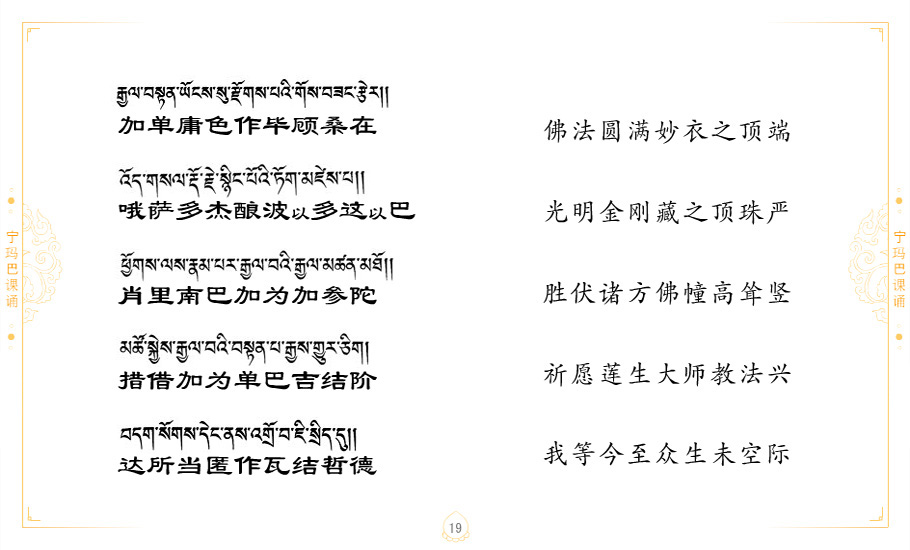 རྒྱལ་བསྟན་ཡོངས་སུ་རྫོགས་པའི་གོས་བཟང་རྩེར།།
加单庸色作毕顾桑在
佛法圆满妙衣之顶端
འོད་གསལ་རྡོ་རྗེ་སྙིང་པོའི་ཏོག་མཛེས་པ།།
哦萨多杰酿波以多这以巴
光明金刚藏之顶珠严
ཕྱོགས་ལས་རྣམ་པར་རྒྱལ་བའི་རྒྱལ་མཚན་མཐོ།།
肖里南巴加为加参陀
胜伏诸方佛幢高耸竖
མཚོ་སྐྱེས་རྒྱལ་བའི་བསྟན་པ་རྒྱས་གྱུར་ཅིག།
措借加为单巴吉结阶
祈愿莲生大师教法兴
བདག་སོགས་དེང་ནས་འགྲོ་བ་ཇི་སྲིད་དུ།།
达所当匿作瓦结哲德
我等今至众生未空际
宁玛巴课诵
宁玛巴课诵
19